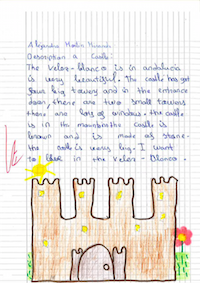 Alejandro Martin
Description a Castle:
The Velez-blanco is in andalucia
is very beautiful. The castle has got
four big towers and in the entrance
door, there are two small towers
there are lots of windows. the castle
is in the mountain the castle is
brown and is made of stone.
the castle is very big. I want
to live in the Velez-Blanco.